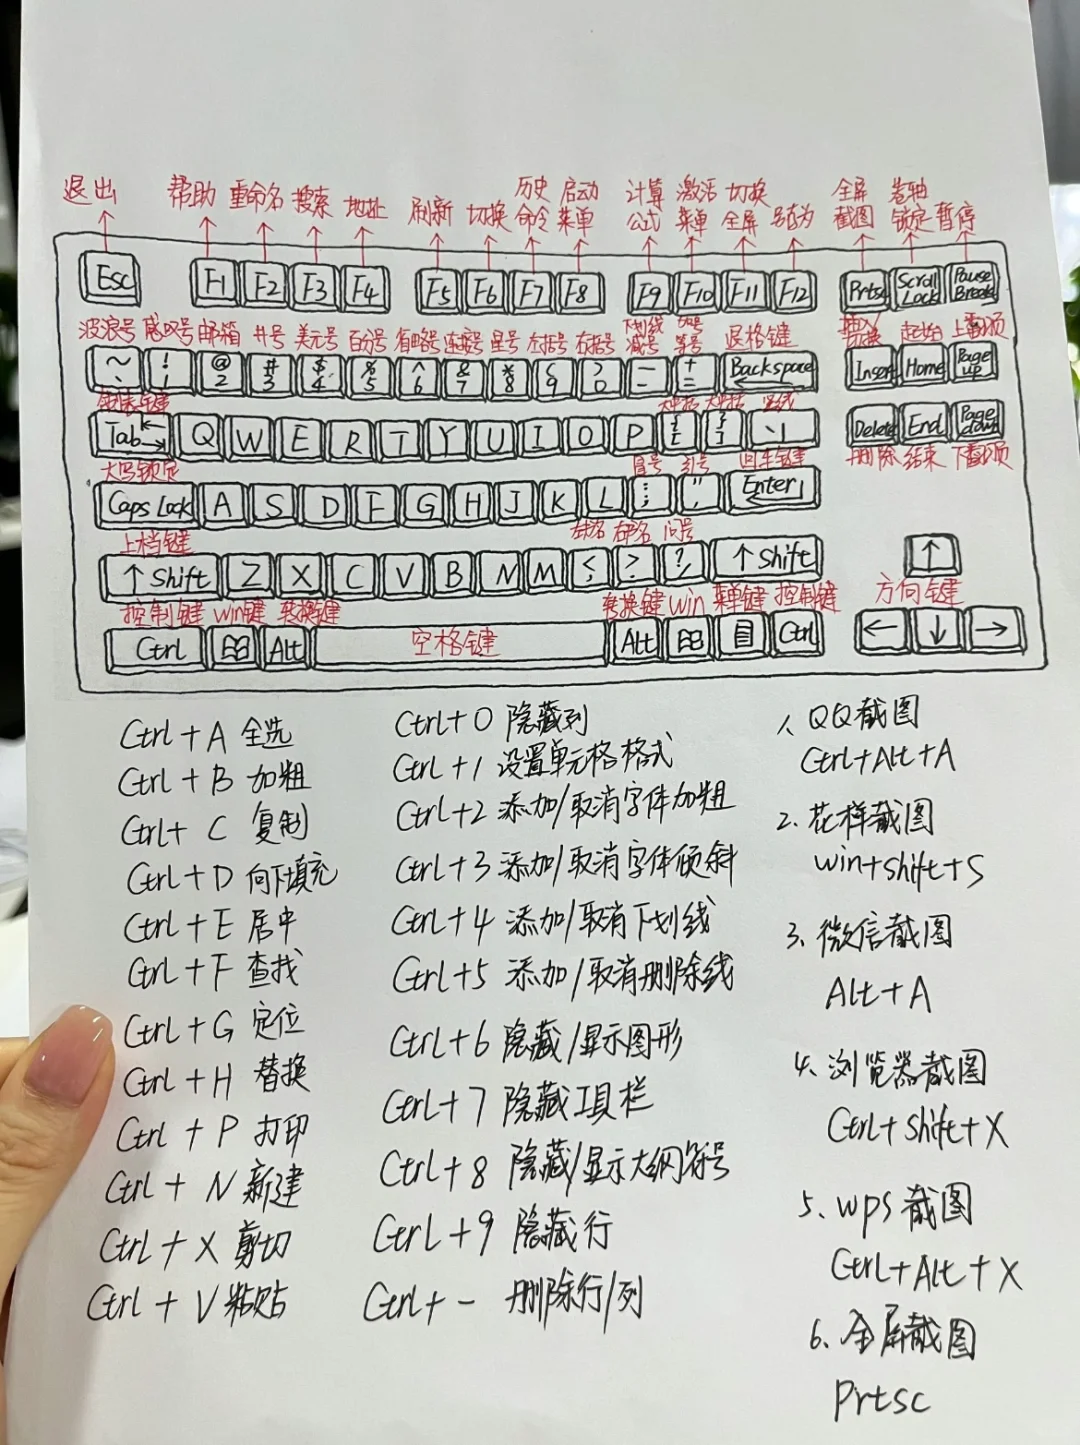 退出 帮助 重命名 搜索 地址 刷新 切换 历史命令 启动菜单 计算公式 激活菜单 切换全屏 另存为 全屏截图 卷轴锁定 暂停
Esc F1 F2 F3 F4 F5 F6 F7 F8 F9 F10 F11 F12 Prtsc Scroll Lock Pause Break
波浪号 感叹号 邮箱 井号 美元号 百分号 省略号 连接号 星号 左括号 右括号 下划线 减号 加号 等号 退格键 插入 切换 起始 上翻页
~ ` ! 1 @ 2 # 3 $ 4 % 5 ^ 6 & 7 * 8 ( 9 ) 0 _ - + = Backspace Insert Home Page up
制表键
Tab Q W E R T Y U I O P { [ } ] \ | Delete End Page down
大写锁定 冒号 引号 回车键 删除 结束 下翻页
Caps Lock A S D F G H J K L : ; " ' Enter
上档键 右书名 问号
↑ Shift Z X C V B N M < , > . ? / ↑ Shift ↑
控制键 win键 转换键 转换键 win 菜单键 控制键 方向键
Ctrl Alt 空格键 Alt Ctrl ← ↓ →
Ctrl + A 全选
Ctrl + B 加粗
Ctrl + C 复制
Ctrl + D 向下填充
Ctrl + E 居中
Ctrl + F 查找
Ctrl + G 定位
Ctrl + H 替换
Ctrl + P 打印
Ctrl + N 新建
Ctrl + X 剪切
Ctrl + V 粘贴
Ctrl+0 隐藏列
Ctrl+1 设置单元格格式
Ctrl+2 添加/取消字体加粗
Ctrl+3 添加/取消字体倾斜
Ctrl+4 添加/取消下划线
Ctrl+5 添加/取消删除线
Ctrl+6 隐藏/显示图形
Ctrl+7 隐藏工具栏
Ctrl+8 隐藏/显示大纲符号
Ctrl+9 隐藏行
Ctrl+- 删除行/列
1、QQ截图
Ctrl+Alt+A
2、花样截图
win+shift+S
3、微信截图
Alt+A
4、浏览器截图
Ctrl+shift+X
5、wps截图
Ctrl+Alt+X
6、全屏截图
Prtsc